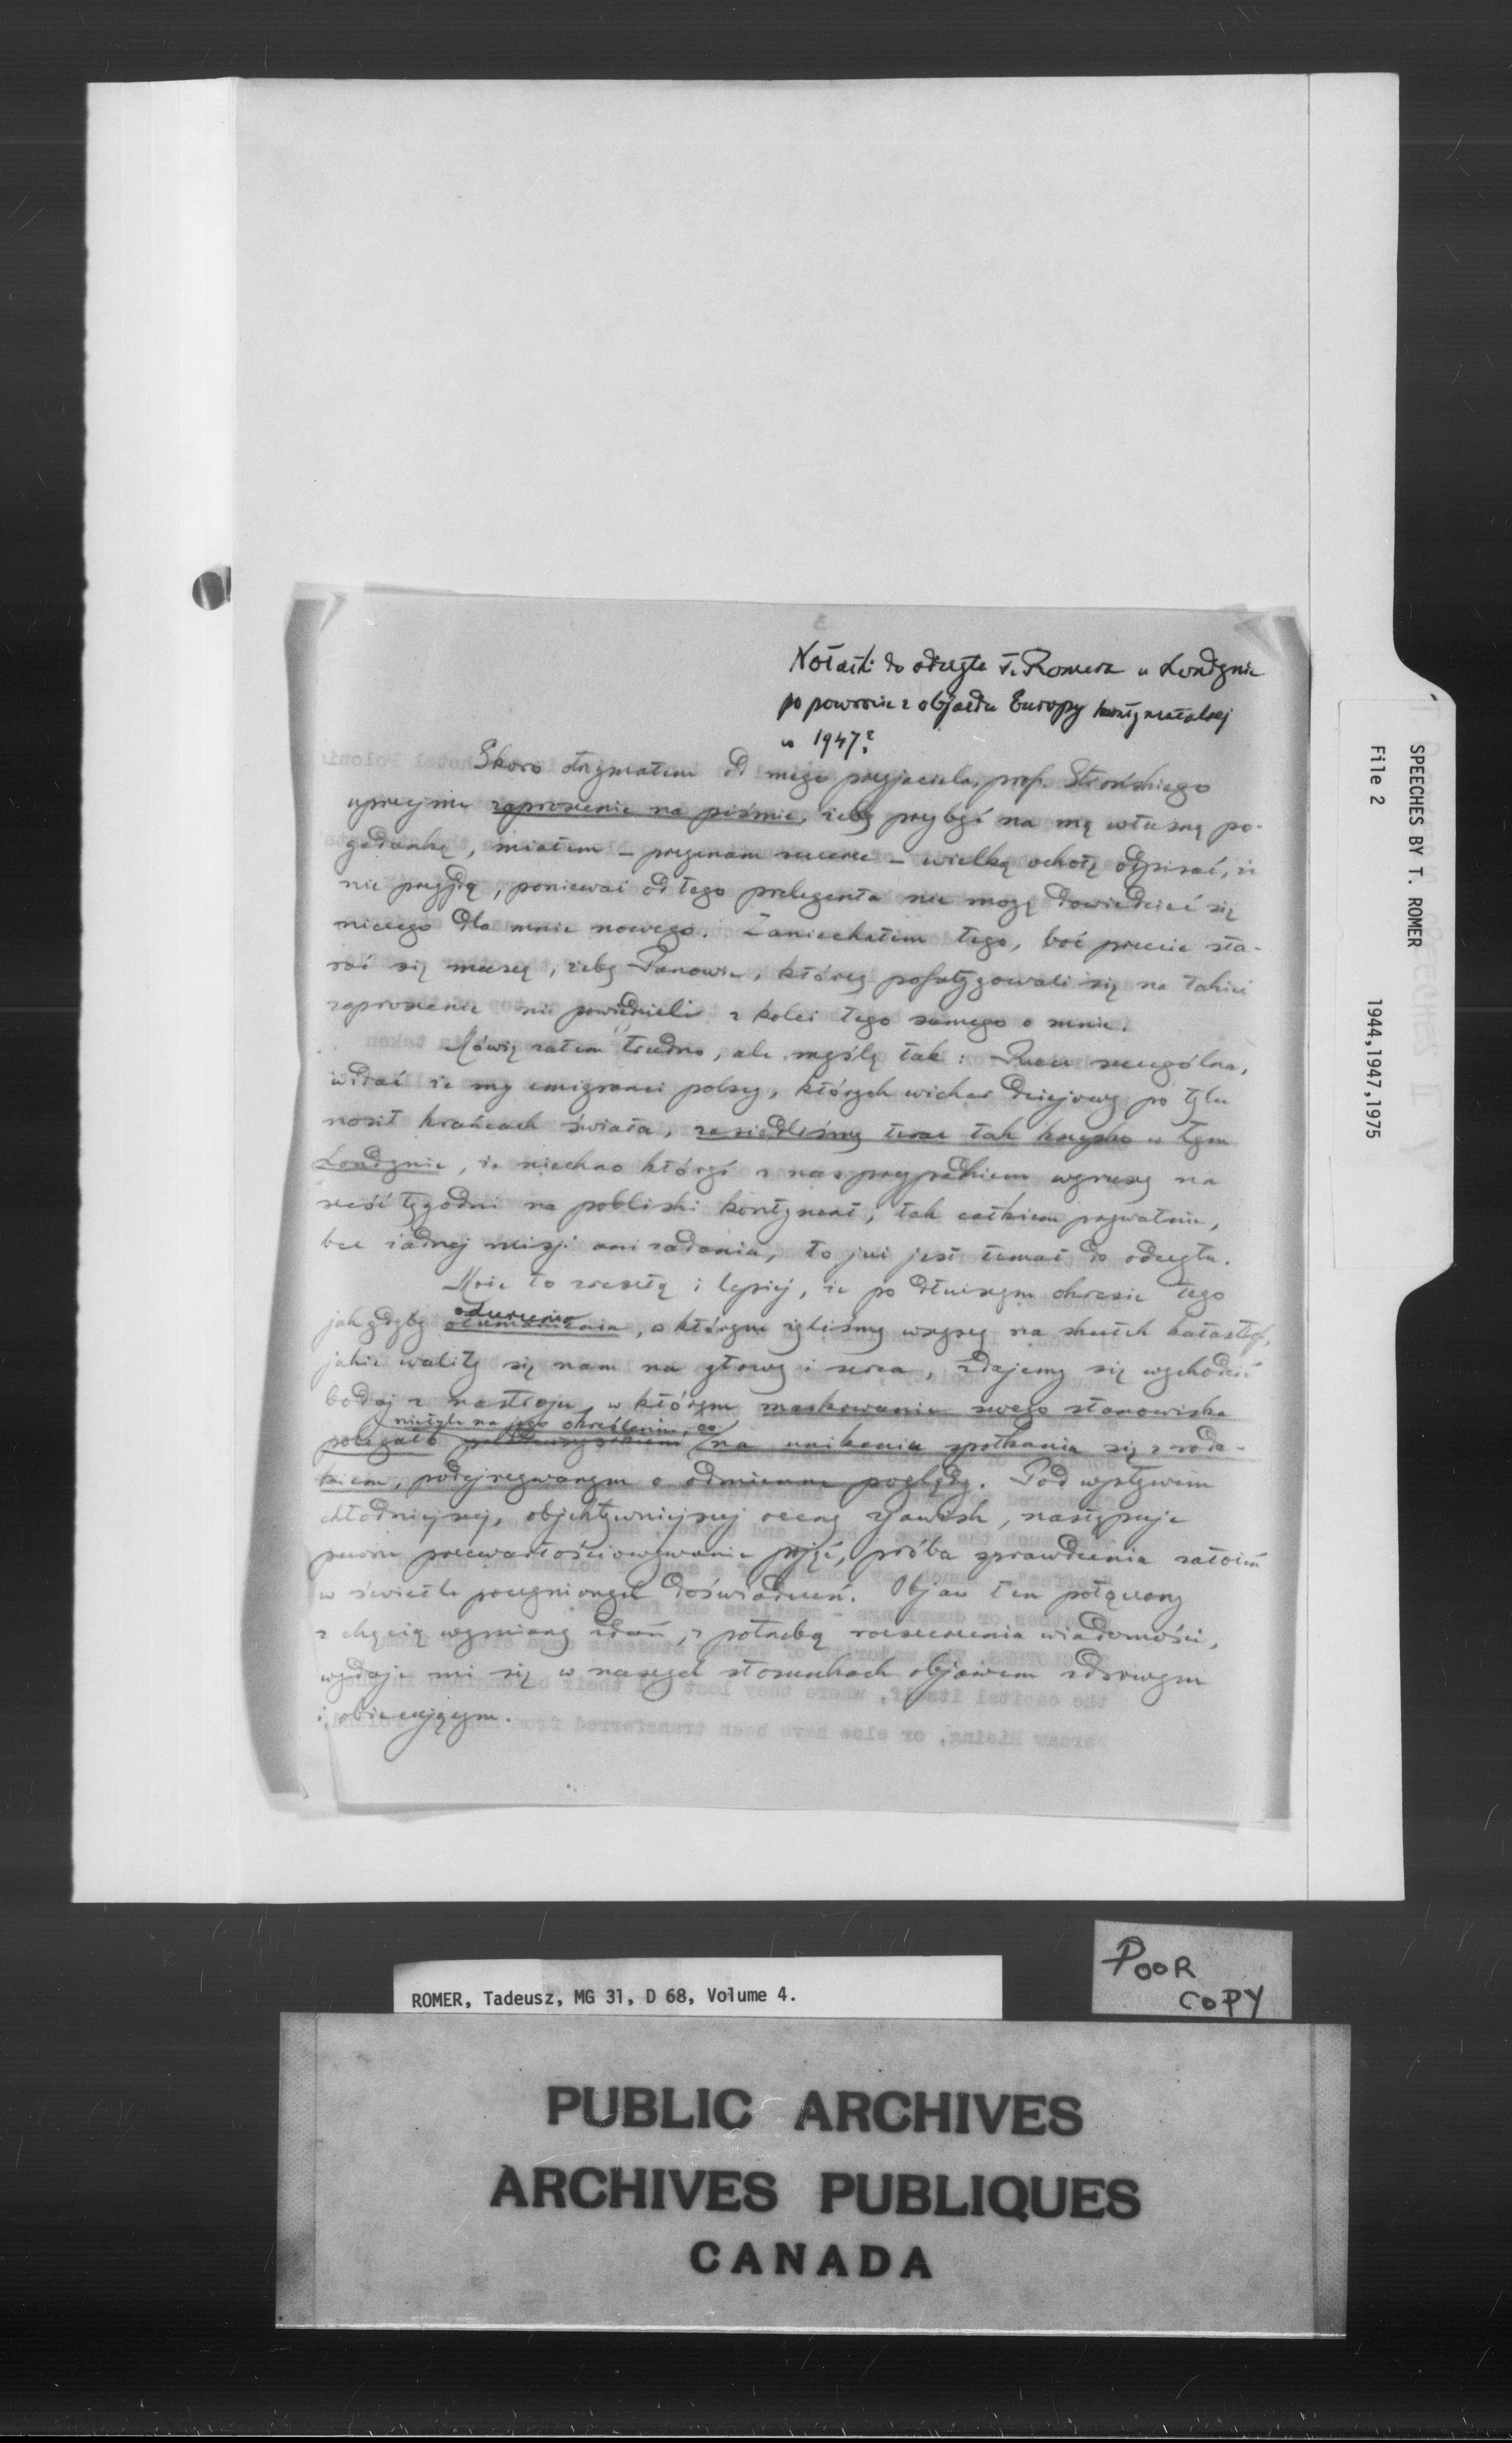 Notatki do odczytu T. Romera w Londynie
po powrocie z objazdu Europy kontynentalnej
w 1947?
Skoro otrzymałem od mego przyjaciela, prof. Strońskiego
uprzejme zaproszenie na piśmie, żeby przybyć na mą własną po-
gadankę, miałem - przyznam szczerze - wielką ochotę odpisać, że
nie przyjdę, ponieważ od tego prelegenta nie mogę dowiedzieć się
niczego dla mnie nowego. Zaniechałem tego, boć przecie sta-
rać się muszę, żeby Panowie, którzy pofatygowali się na takież
zaproszenie nie powiedzieli z kolei tego samego o mnie.
Mówię zatem trudno, ale myślę tak: Rzecz szczególna,
widać że my emigranci polscy, których wicher dziejowy po tylu
nosił krańcach świata, zasiedliśmy teraz tak krzepko w tym
Londynie, że niechno któryś z nas przypadkiem wyruszy na
sześć tygodni na pobliski kontynent, tak całkiem prywatnie,
bez żadnej misji ani zadania, to już jest temat do odczytu.
Może to zresztą i lepiej, że po dłuższym okresie tego
odurzenia
jak gdyby otumanienia, w którym żyliśmy wszyscy na skutek katastrof,
jakie waliły się nam na głowy i serca, zdajemy się wychodzić
bodaj z nastroju, w którym maskowanie swego stanowiska
nieżyle na jego określeniu, co
polegało na unikaniu spotkania się z roda-
kiem, podejrzewanym o odmienne poglądy. Pod wpływem
chłodniejszej, objektywniejszej oceny zjawisk, następuje
pewne przewartościowywanie pojęć, próba sprawdzenia założeń
w świetle poczynionych doświadczeń. Objaw ten połączony
z chęcią wymiany zdań, z potrzebą rozszerzenia wiadomości,
wydaje mi się w naszych stosunkach objawem zdrowym
i obiecującym.
SPEECHES BY T. ROMER
File 2 1944,1947,1975
ROMER, Tadeusz, MG 31, D 68, Volume 4.
POOR
COPY
PUBLIC ARCHIVES
ARCHIVES PUBLIQUES
CANADA